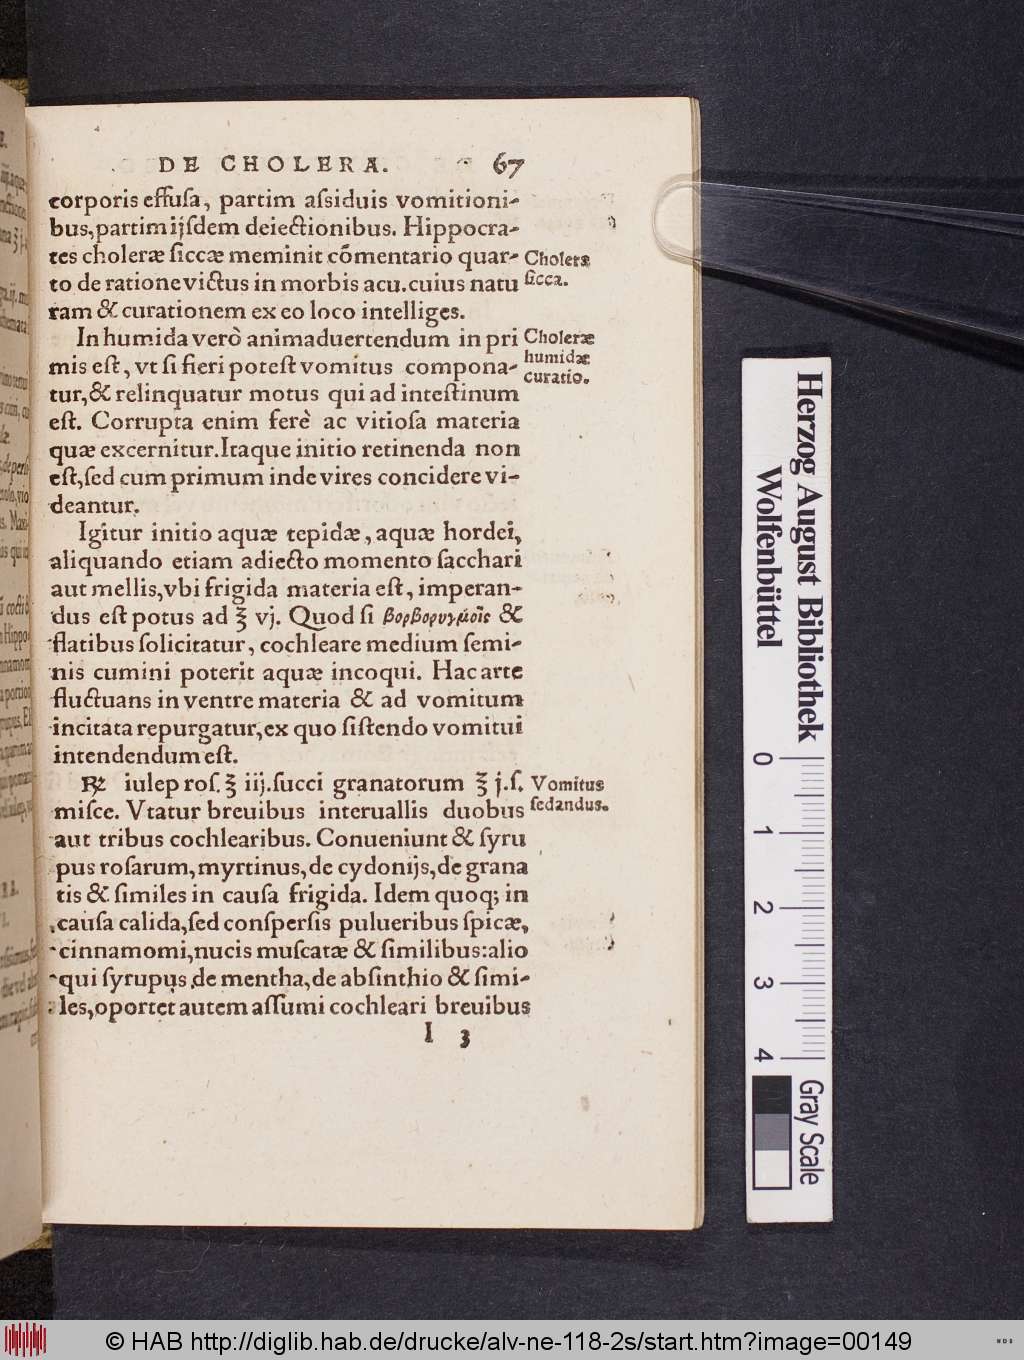 DE CHOLERA. 67
corporis effusa, partim assiduis vomitioni-
bus, partim ijsdem deiectionibus. Hippocra-
tes choleræ siccæ meminit cõmentario quar-
to de ratione victus in morbis acu. cuius natu
ram & curationem ex eo loco intelliges.
Cholera
sicca.
In humida verò animaduertendum in pri
mis est, vt si fieri potest vomitus compona-
tur, & relinquatur motus qui ad intestinum
est. Corrupta enim ferè ac vitiosa materia
quæ excernitur. Itaque initio retinenda non
est, sed cum primum inde vires concidere vi-
deantur.
Choleræ
humidæ
curatio.
Igitur initio aquæ tepidæ, aquæ hordei,
aliquando etiam adiecto momento sacchari
aut mellis, vbi frigida materia est, imperan-
dus est potus ad ℥ vj. Quod si βορβορυγμοῖς &
flatibus solicitatur, cochleare medium semi-
nis cumini poterit aquæ incoqui. Hac arte
fluctuans in ventre materia & ad vomitum
incitata repurgatur, ex quo sistendo vomitui
intendendum est.
℞ iulep ros. ℥ iij. succi granatorum ℥ j.s.
misce. Vtatur breuibus interuallis duobus
aut tribus cochlearibus. Conueniunt & syru
pus rosarum, myrtinus, de cydonijs, de grana
tis & similes in causa frigida. Idem quoq; in
causa calida, sed conspersis pulueribus spicæ,
cinnamomi, nucis muscatæ & similibus: alio
qui syrupus de mentha, de absinthio & simi-
les, oportet autem assumi cochleari breuibus
Vomitus
sedandus.
I 3
Herzog August Bibliothek
Wolfenbüttel
0 1 2 3 4
Gray Scale
© HAB http://diglib.hab.de/drucke/alv-ne-118-2s/start.htm?image=00149